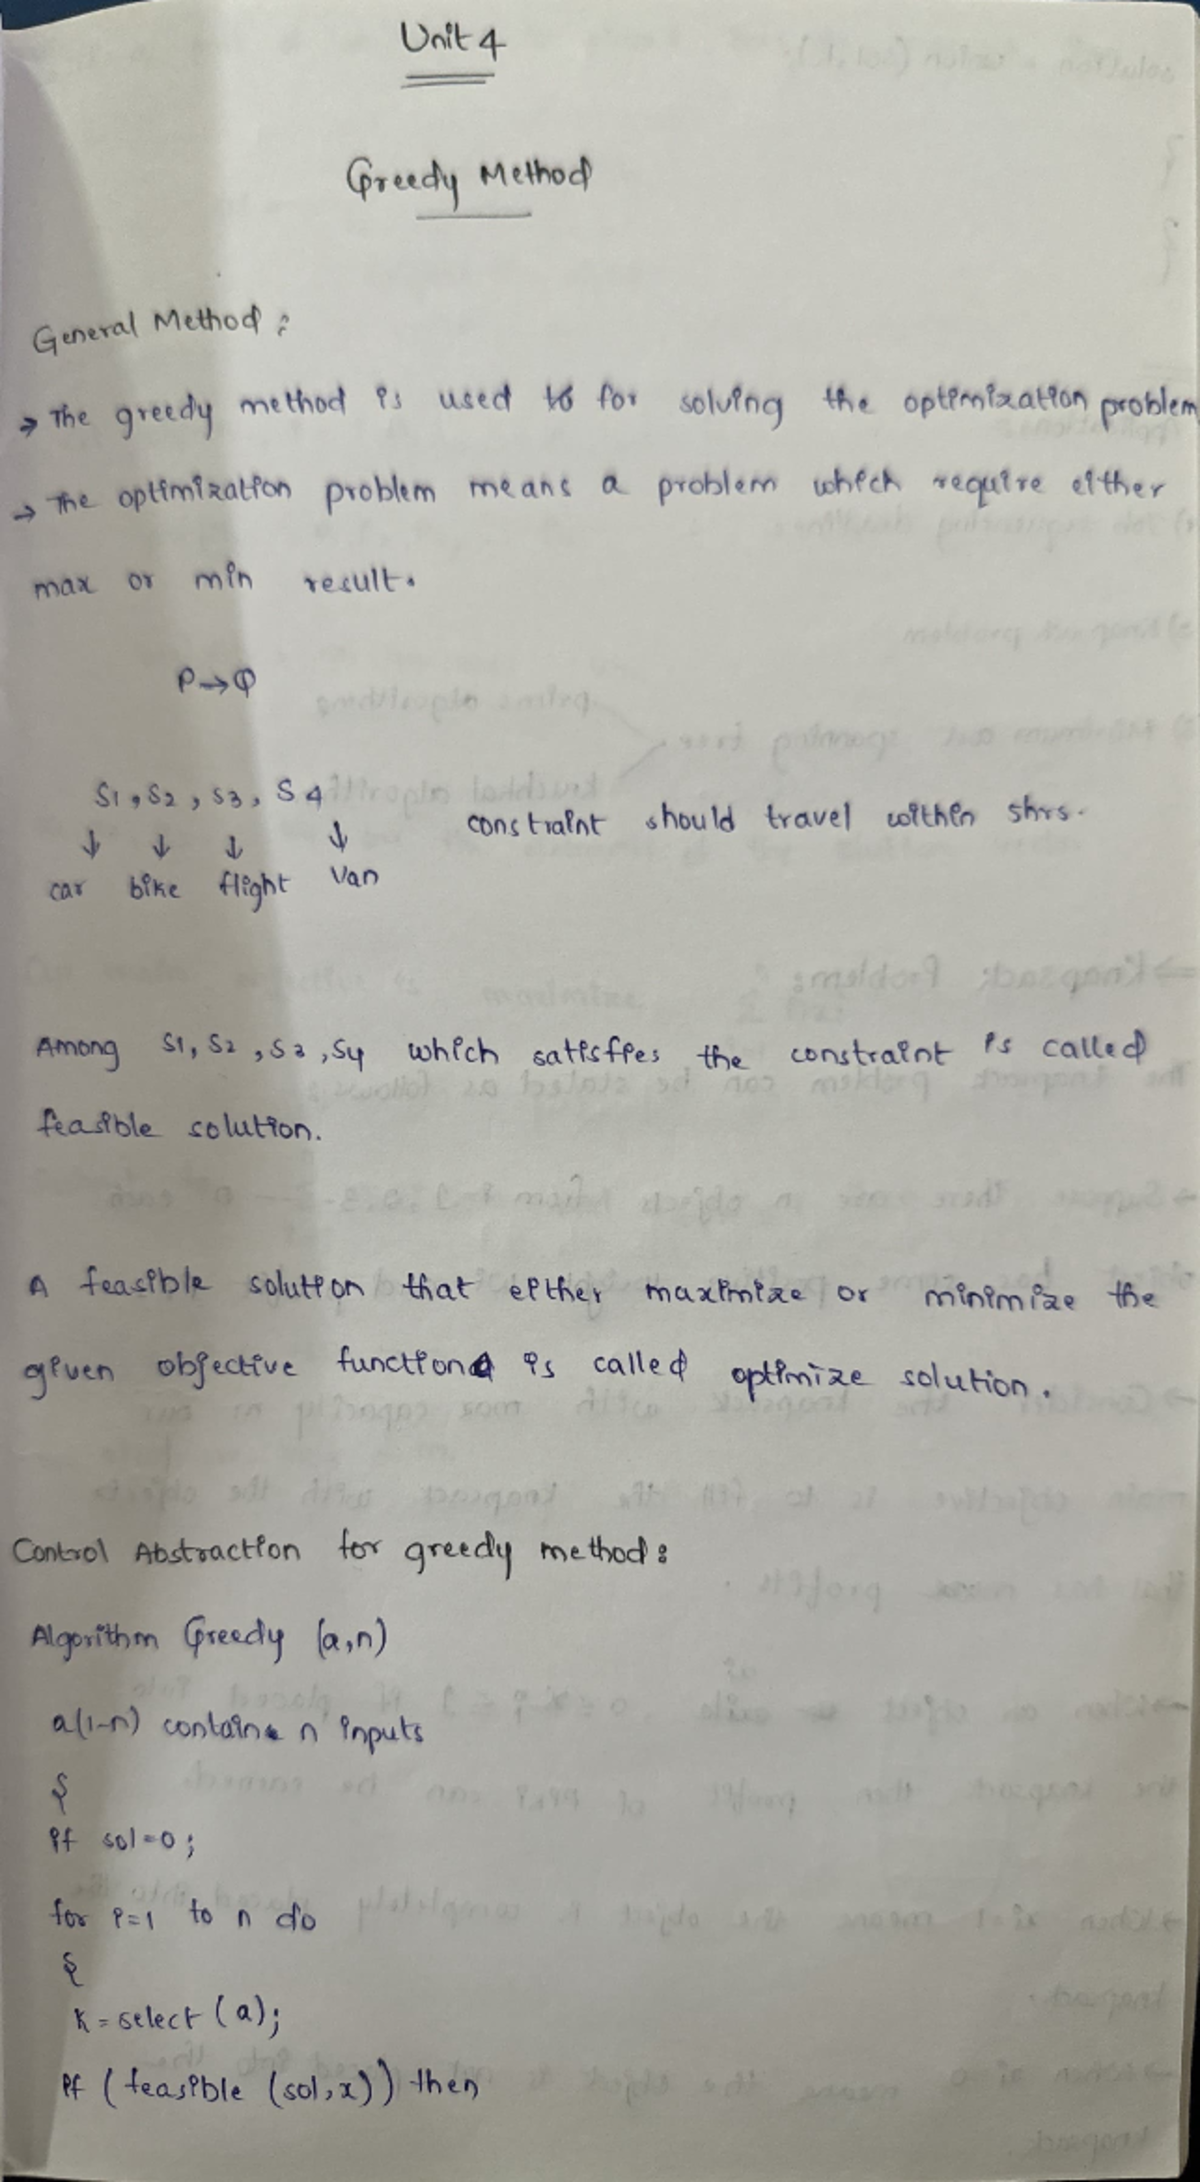 Unit 4
Greedy Method
General Method:
→ The greedy method is used for solving the optimization problem
→ The optimization problem means a problem which require either
max or min result.
P→Q
S1, S2, S3, S4
↓ ↓ ↓ ↓
constraint should travel within 5hrs.
car bike flight van
Among S1, S2, S3, S4 which satisfies the constraint is called
feasible solution.
A feasible solution that either maximize or minimize the
given objective function is called optimize solution.
Control Abstraction for greedy method:
Algorithm Greedy (a,n)
a(1-n) contains n inputs
{
if sol=0;
for i=1 to n do
{
K = select (a);
if (feasible (sol,x)) then